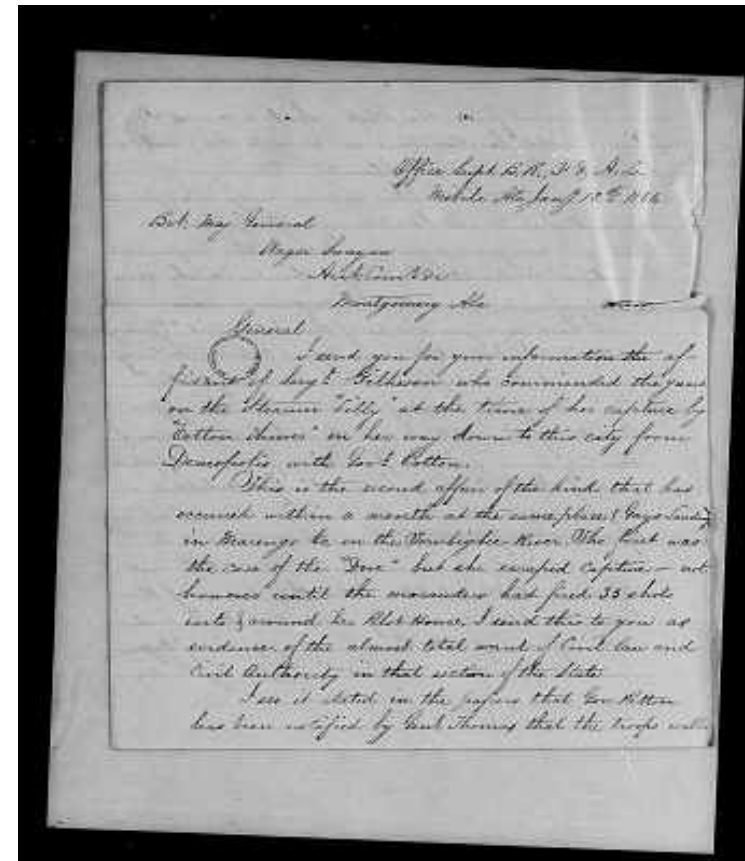 Office Supt. B. R., F. & A. L.
Mobile Ala Jany 1866
Bvt. Maj General
Wager Swayne
Asst Com
Montgomery Ala
General
I send you for your information the af
fidavit of Sergt. who commanded the guard
on the Steamer "Lilly" at the time of her capture by
"Cotton thieves" on her way down to this city from
Demopolis with Govt Cotton.
This is the second affair of the kind that has
occured within a month at the same place
in Marengo Co on the Tombigbee River. The first was
the case of the "Dove" but she escaped capture — not
however until the marauders had fired 33 shots
into & around her Pilot House. I send this to you as
evidence of the almost total want of Civil law and
Civil Authority in that section of the State
I see it stated in the papers that Gov Patton
has been notified by Genl Thomas that the troops will